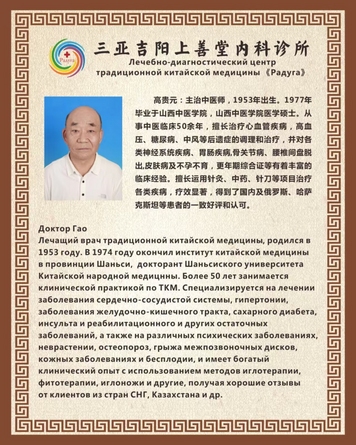 三亚吉阳上善堂内科诊所
Лечебно-диагностический центр
традиционной китайской медицины 《Радуга》
高贵元：主治中医师，1953年出生。1977年
毕业于山西中医学院，山西中医学院医学硕士。从
事中医临床50余年，擅长治疗心血管疾病，高血
压、糖尿病、中风等后遗症的调理和治疗，并对各
类神经系统疾病、胃肠疾病,骨关节病、腰椎间盘脱
出,皮肤病及不孕不育，更年期综合证等有着丰富的
临床经验。擅长运用针灸、中药、针刀等项目治疗
各类疾病，疗效显著，得到了国内及俄罗斯、哈萨
克斯坦等患者的一致好评和认可。
Доктор Гао
Лечащий врач традиционной китайской медицины, родился в
1953 году. В 1974 году окончил институт китайской медицины
в провинции Шаньси, докторант Шаньсиского университета
Китайской народной медицнны. Более 50 лет занимается
клинической практикой по ТКМ. Специализируется на лечении
заболевания сердечно-сосудистой системы, гипертонии,
заболевания желудочно-кишечного тракта, сахарного диабета,
инсульта и реабилитационного и других остаточных
заболеваний, а также на различных психических заболеваниях,
неврастении, остеопороз, грыжа межпозвоночных дисков,
кожных заболеваниях и бесплодии, и имеет богатый
клинический опыт с использованием методов иглотерапии,
фитотерапии, иглоножи и другие, получая хорошие отзывы
от клиентов из стран СНГ, Казахстана и др.